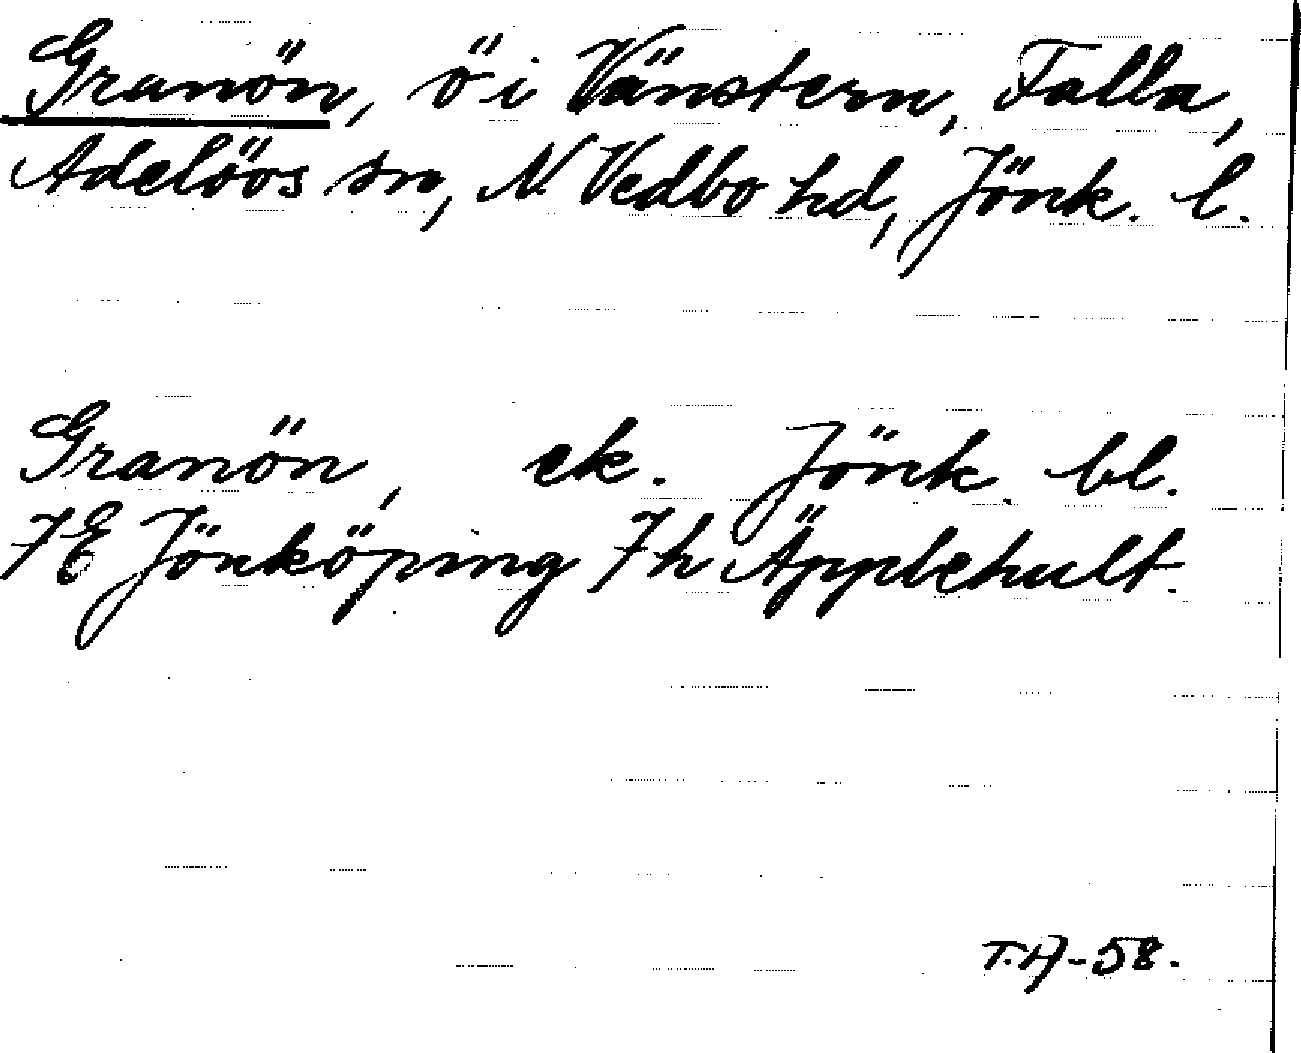 Granön, ö i Vänstern, Falla,
Adelöös sn, N. Vedbo hd, Jönk. l.
Granön, ek. Jönk. bl.
7E Jönköping 7h Äpplehult.
T.A-58.